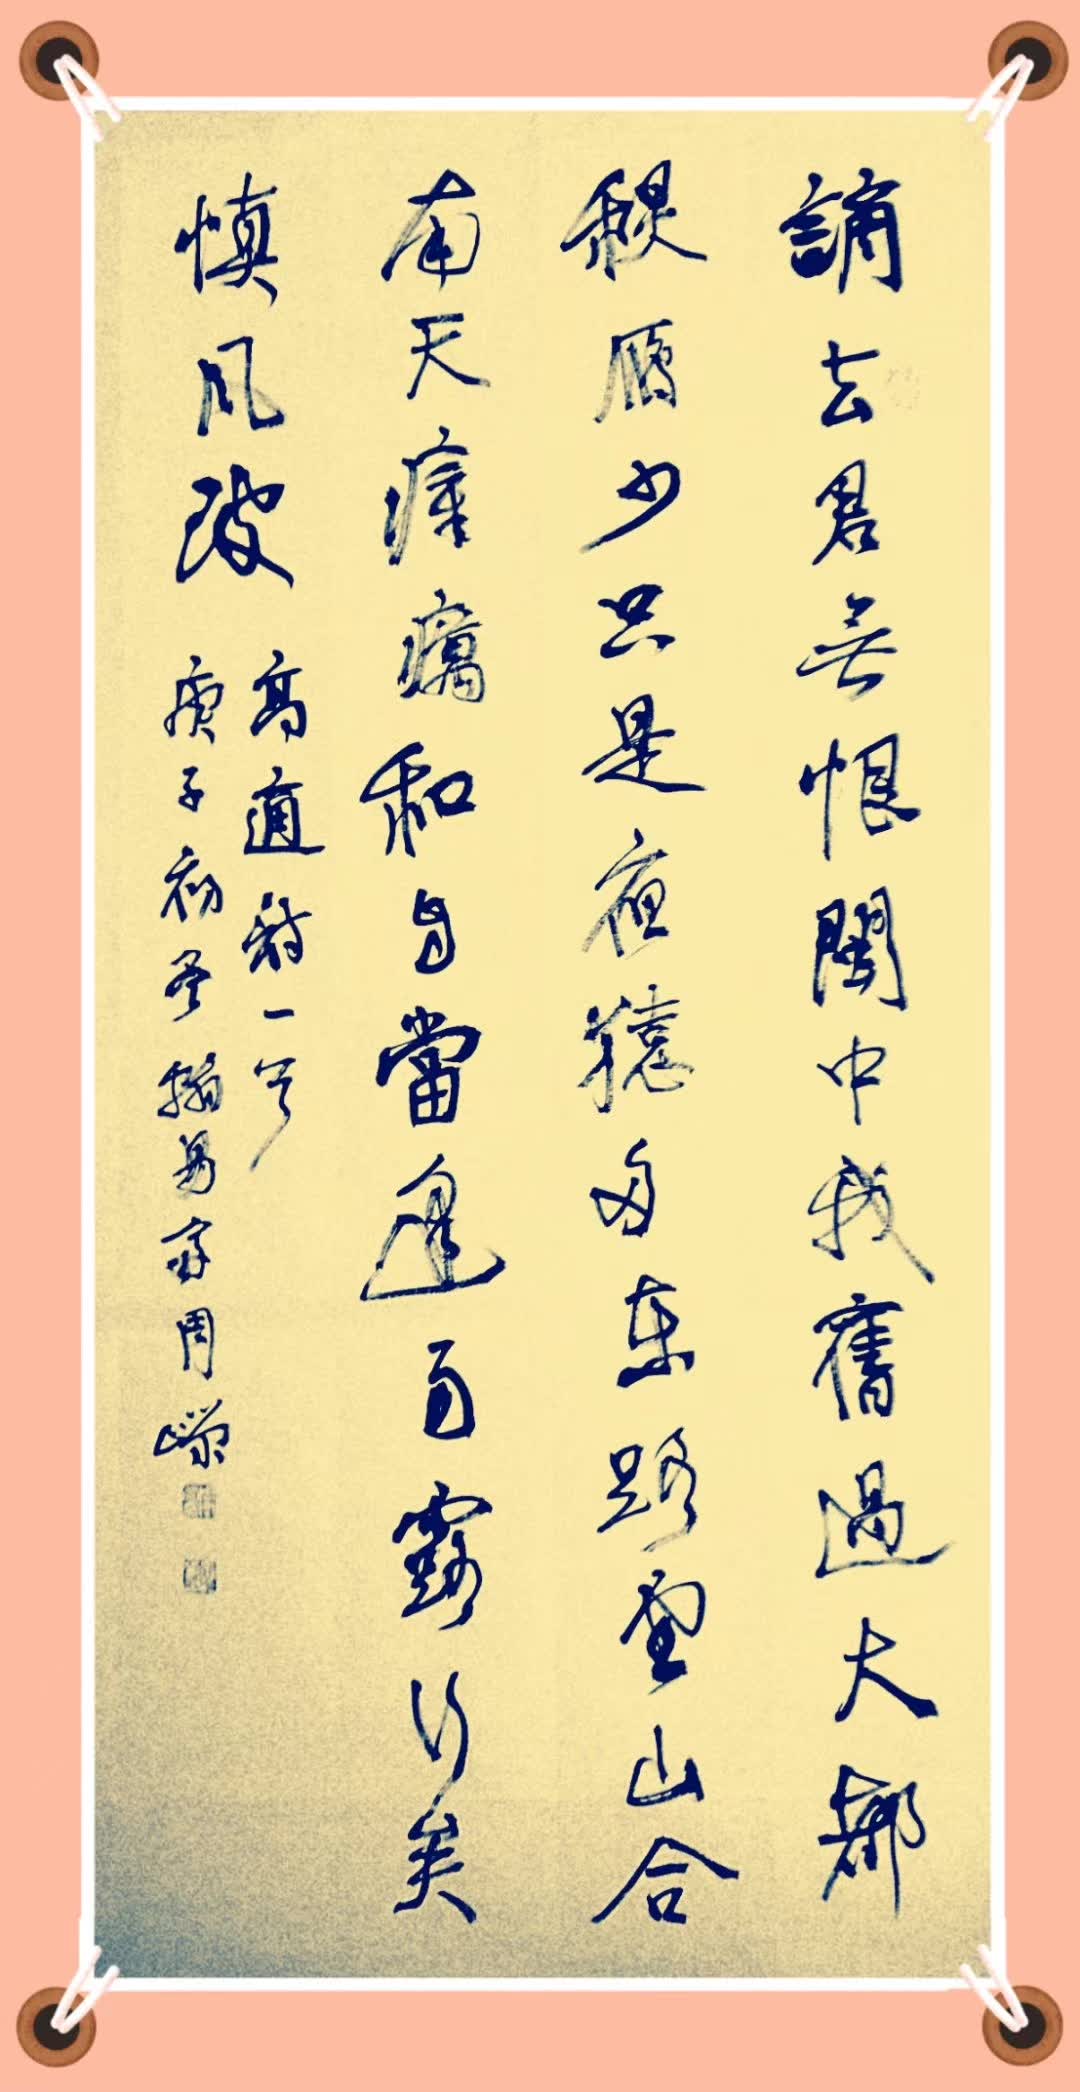 謫去君無恨閩中我舊過大都
秋雁少只是夜猿多東路雲山合
南天瘴癘和自當逢雨露行矣
慎風波
高適詩一首
庚子初冬翰易齋周嶸